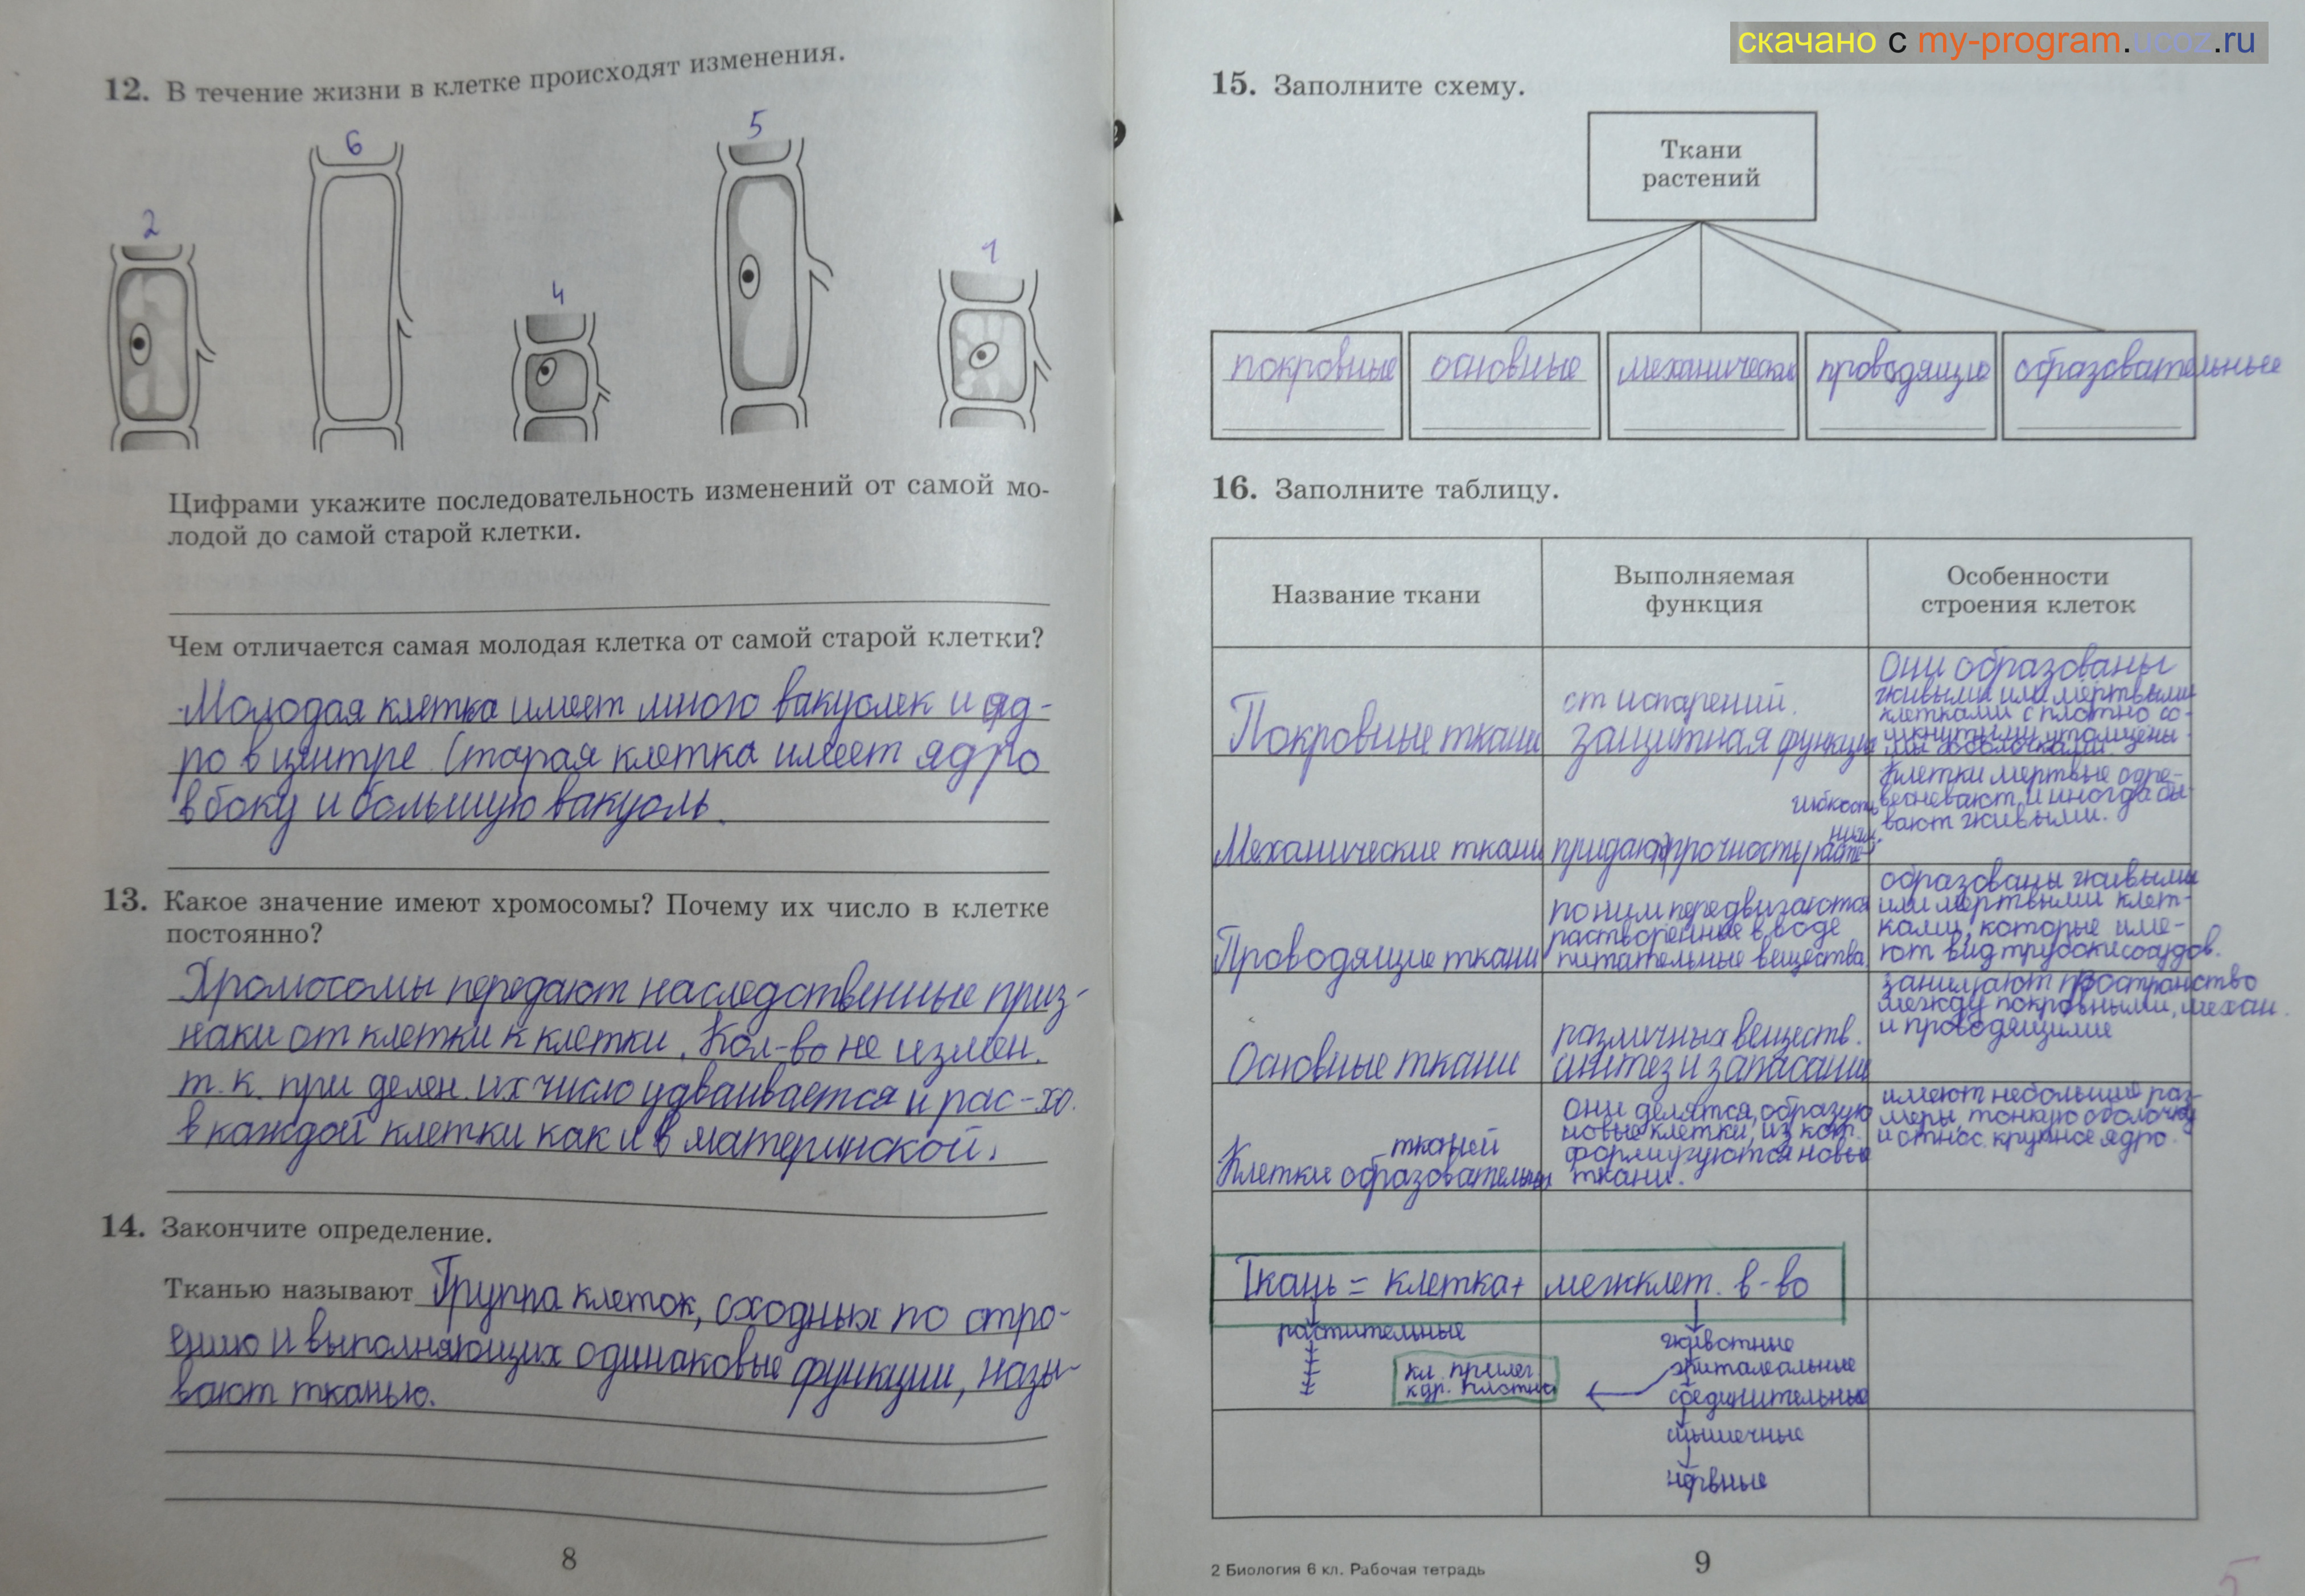 скачано с my-program.ucoz.ru
12. В течение жизни в клетке происходят изменения.
2
6
4
5
1
Цифрами укажите последовательность изменений от самой мо-
лодой до самой старой клетки.
Чем отличается самая молодая клетка от самой старой клетки?
Молодая клетка имеет много вакуолек и яд-
ро в центре Старая клетка имеет ядро
в боку и большую вакуоль.
13. Какое значение имеют хромосомы? Почему их число в клетке
постоянно?
Хромосомы передают наследственные приз-
наки от клетки к клетки. Кол-во не измен.
т.к. при делен. их число удваивается и рас-хо.
в каждой клетки как и в материнской.
14. Закончите определение.
Тканью называют Группа клеток, сходных по стро-
ению и выполняющих одинаковые функции, назы-
вают тканью.
8
15. Заполните схему.
Ткани
растений
покровные
основные
механические
проводящие
образовательные
16. Заполните таблицу.
Название ткани
Выполняемая
функция
Особенности
строения клеток
Покровные ткани
от испарений.
защитная функция
Они образованы
живыми или мёртвыми
клетками с плотно со-
мкнутыми утолщены-
ми оболочками
Механические ткани
гибкость
придают прочность расте-
ниям.
Клетки мертвые одре-
весневают и иногда бы-
вают живыми.
Проводящие ткани
по ним передвигаются
растворенные в воде
питательные вещества
образованы живыми
или мёртвыми клет-
ками, которые име-
ют вид трубок и сосудов.
Основные ткани
различных веществ.
синтез и запасание
занимают пространство
между покровными, механ.
и проводящими
тканей
Клетки образовательных
они делятся, образую
новые клетки, из кот.
формируются новые
ткани.
имеют небольшие раз-
меры, тонкую оболочку
и относ. крупное ядро.
Ткань = клетка + межклет. в-во
растительные
животные
эпителеальные
соединительные
мышечные
нервные
кл. прилег.
к др. плотно
2 Биология 6 кл. Рабочая тетрадь
9
5